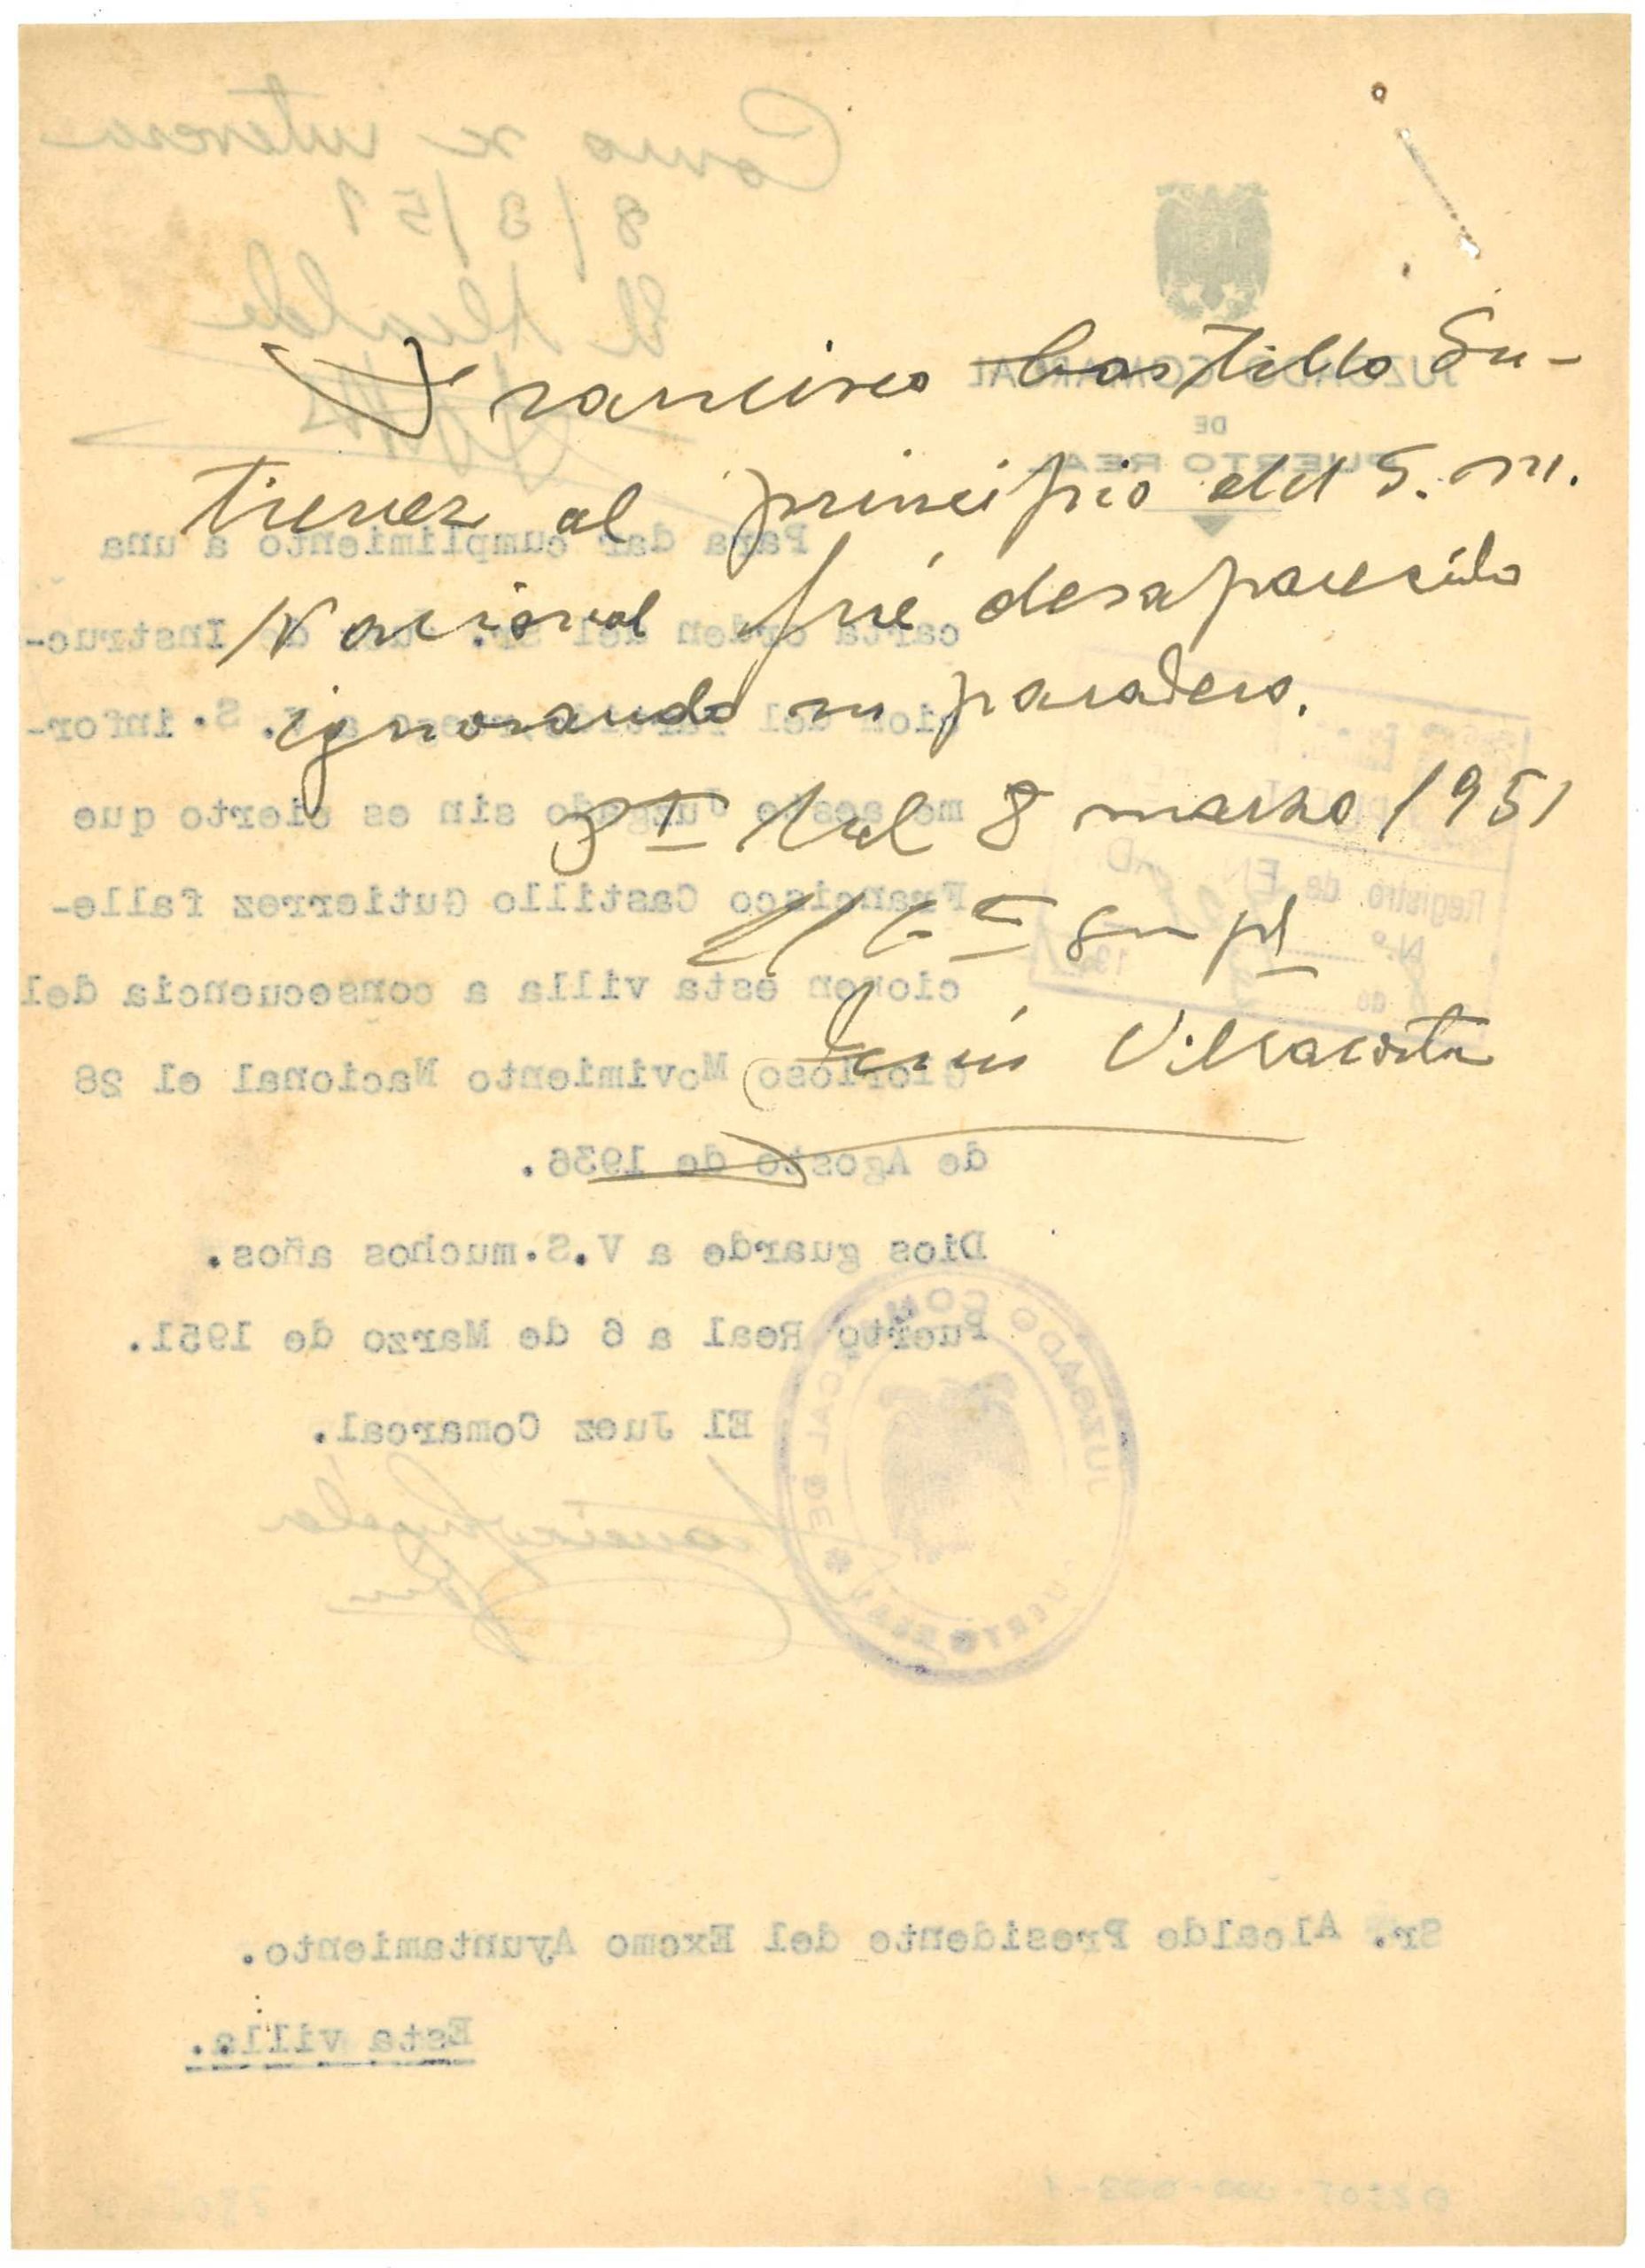 Francisco Castillo Gu-
tierrez al principio del G. M.
Nacional fué desaparecido
ignorando su paradero.
Pto Real 8 marzo 1951
Jesús Villacorta
Como se interesa
8/3/51
El Alcalde
JUZGADO COMARCAL
DE
PUERTO REAL
Para dar cumplimiento a una
carta orden del Sr. Juez de Instruc-
cion del Partido, ruego a V. S. infor-
me a este Juzgado sin es cierto que
Francisco Castillo Gutierrez falle-
cio en esta villa a consecuencia del
Glorioso Movimiento Nacional el 28
de Agosto de 1936.
Dios guarde a V.S. muchos años.
Puerto Real a 6 de Marzo de 1951.
El Juez Comarcal.
JUZGADO COMARCAL DE PUERTO REAL
Registro de
Nº
Sr. Alcalde Presidente del Excmo Ayuntamiento.
Esta villa.